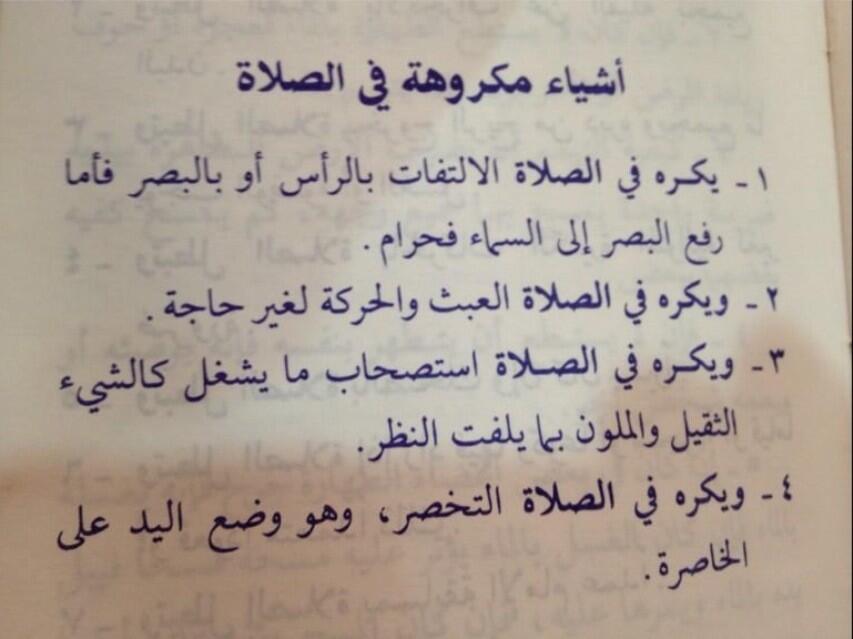 أشياء مكروهة في الصلاة
١ - يكره في الصلاة الالتفات بالرأس أو بالبصر فأما
رفع البصر إلى السماء فحرام .
٢ - ويكره في الصلاة العبث والحركة لغير حاجة .
٣ - ويكره في الصلاة استصحاب ما يشغل كالشيء
الثقيل والملون بما يلفت النظر .
٤ - ويكره في الصلاة التخصر، وهو وضع اليد على
الخاصرة .